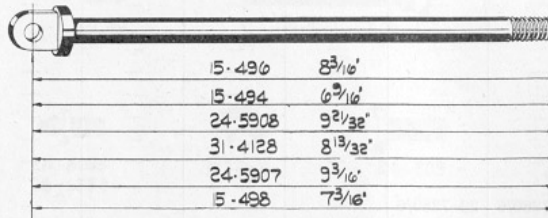 15-496 8 3/16"
15-494 6 9/16"
24-5908 9 21/32"
31-4128 8 13/32"
24-5907 9 3/16"
15-498 7 3/16"